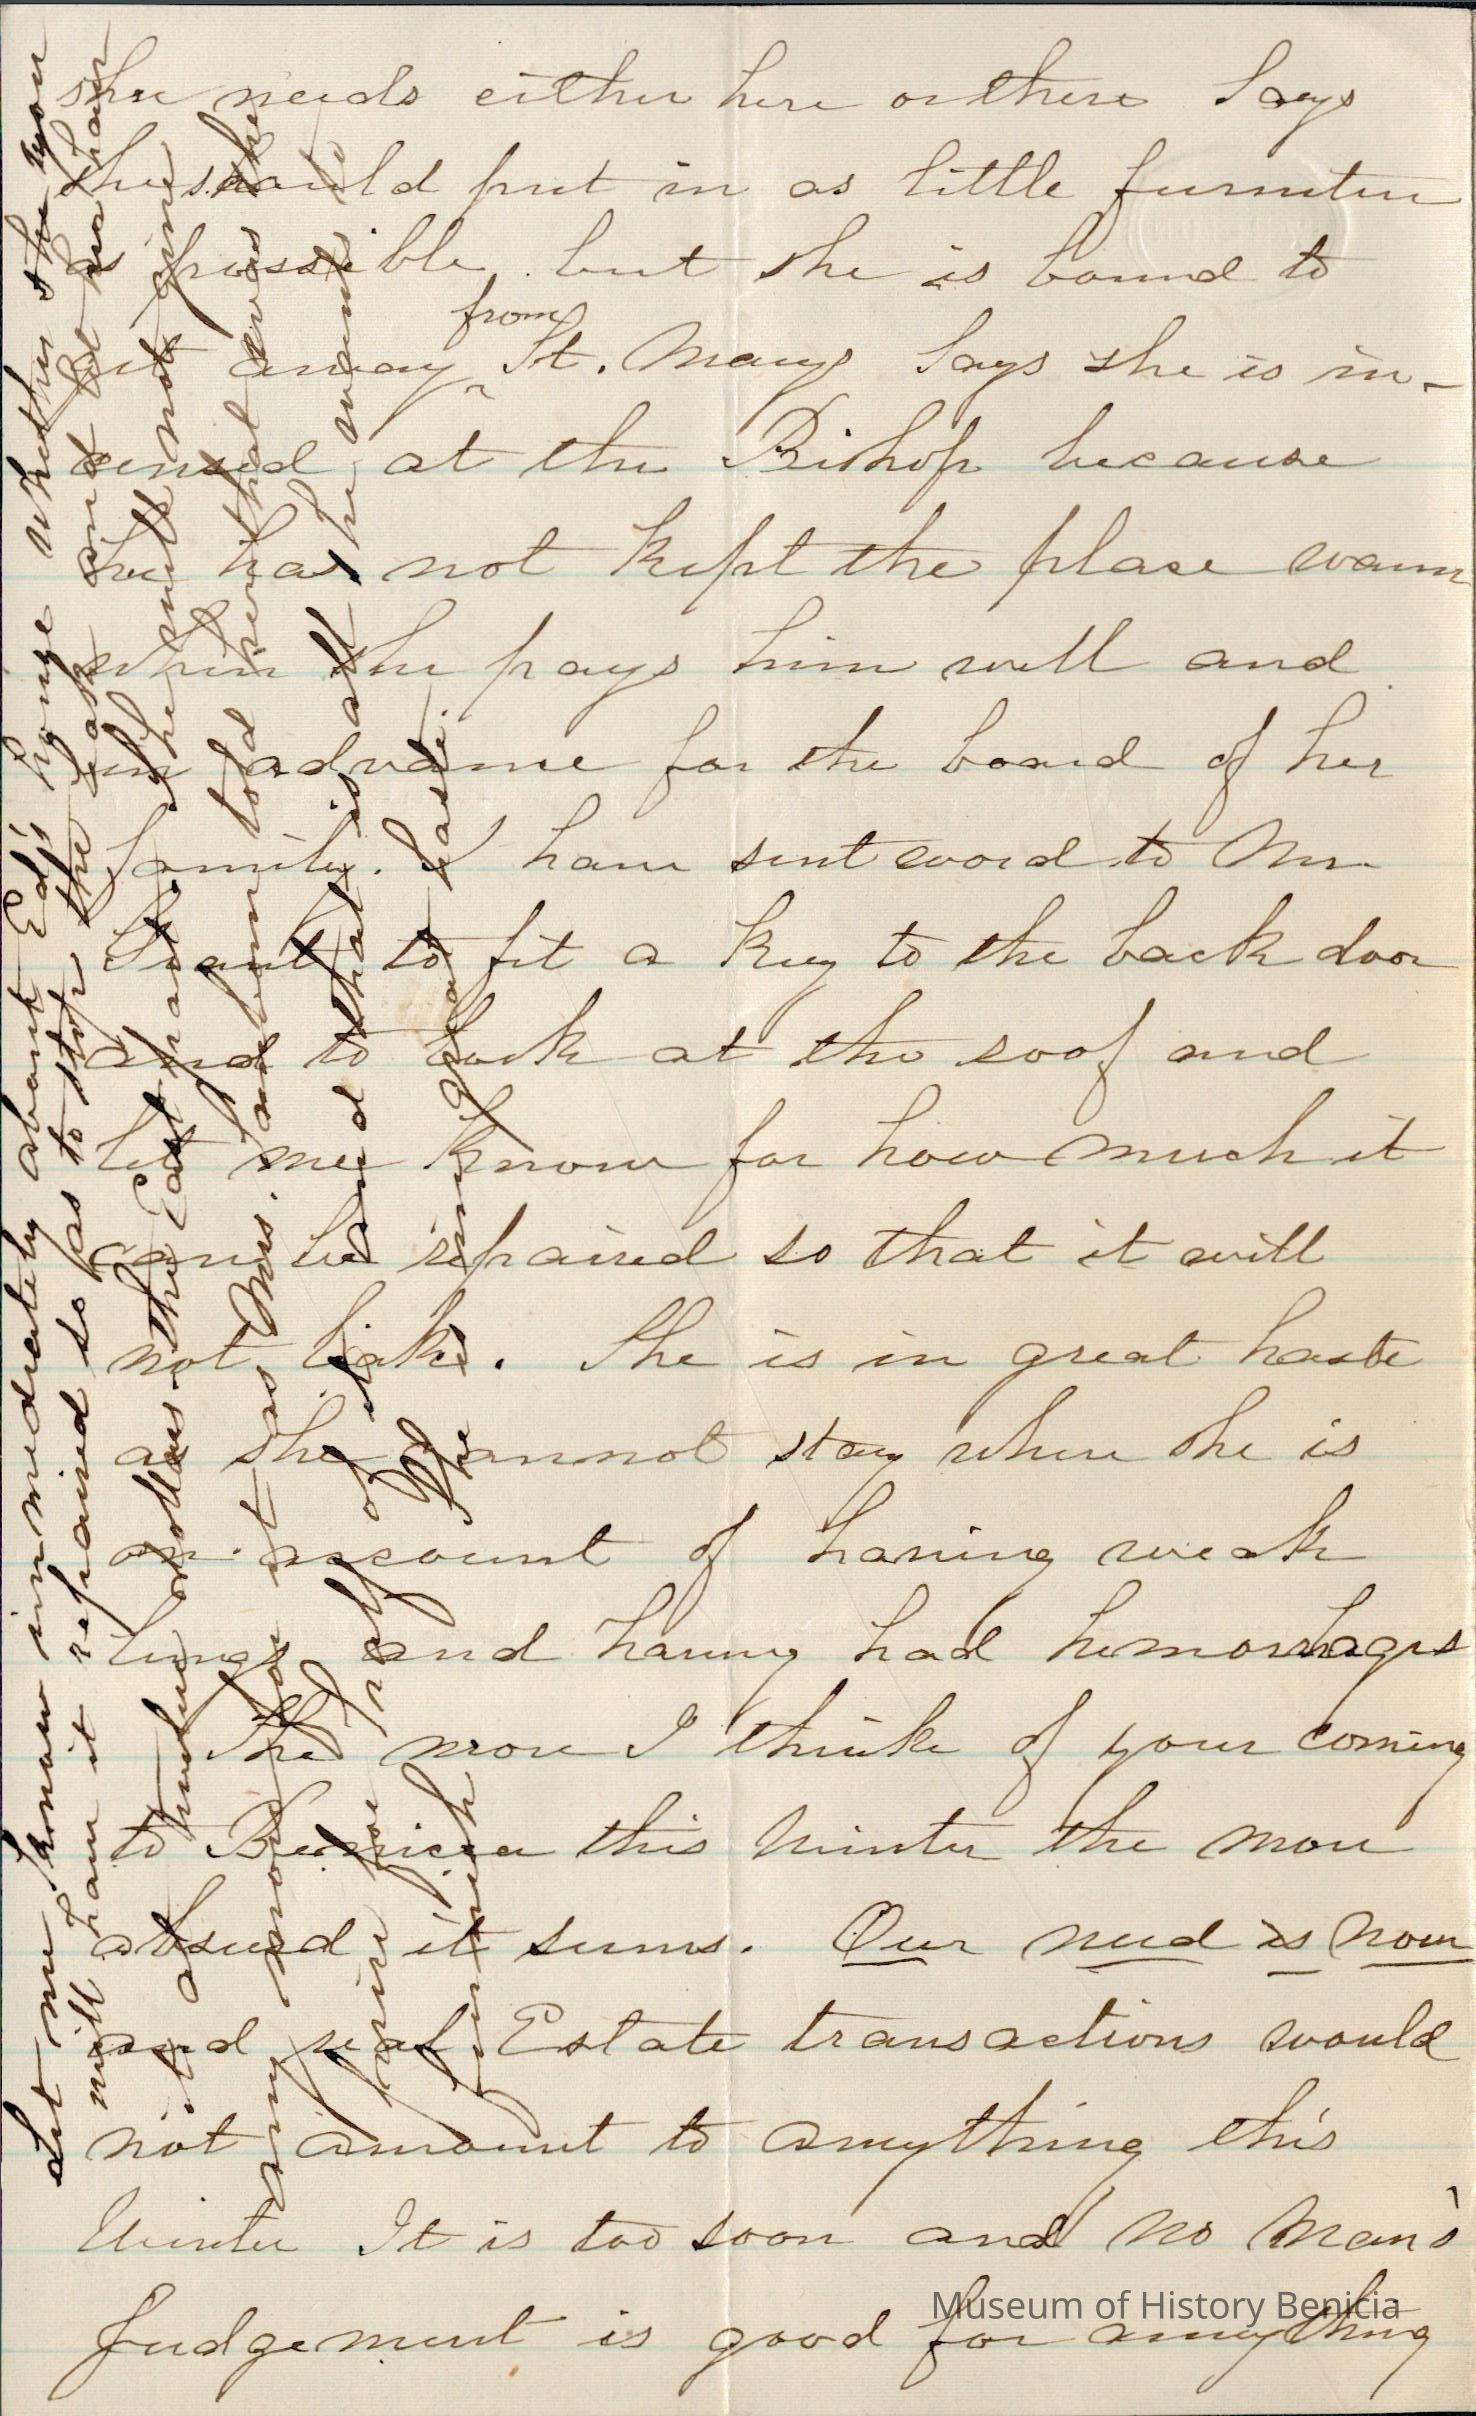 she needs either here or there Says
she should put in as little furniture
as possible but she is bound to
get away from St. Marys Says she is in-
censed at the Bishop because
he has not kept the place warm
when she pays him well and
in advance for the board of her
family. I have sent word to Mr.
Grant to fit a key to the back door
and to look at the roof and
let me know for how much it
can be repaired so that it will
not leak. She is in great haste
as she cannot stay where she is
on account of having weak
lungs and having had hemorrhages
The more I think of your coming
to Benicia this Winter the more
absurd it seems. Our need is now
and real Estate transactions would
not amount to anything this
Winter It is too soon and no Man's
judgement is good for anything
Let me know immediately about Ed's house whether she you
will have it repaired so as to stop the leak and let us have
it about twelve dollars. the East part. She will not give
any more for it as Mrs. Sanborn told her that was the
price for half of it and that is all he wants to
furnish. She is in great haste.
Museum of History Benicia